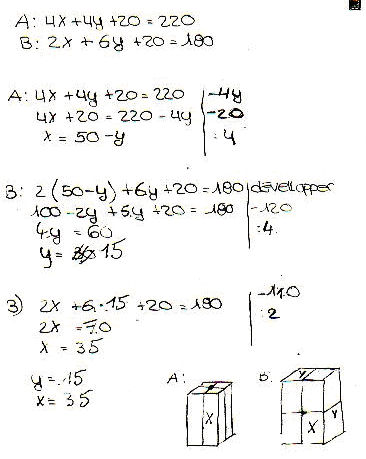 A: 4x+4y+20=220
B: 2x+6y+20=180
A: 4x+4y+20=220 | -4y
4x+20=220-4y | -20
x=50-y | :4
B: 2(50-y)+6y+20=180 | développer
100-2y+6y+20=180 | -120
4y=60 | :4
y=15
3) 2x+6·15+20=180 | -110
2x=70 | :2
x=35
y=15
x=35
A: B:
y
x x y